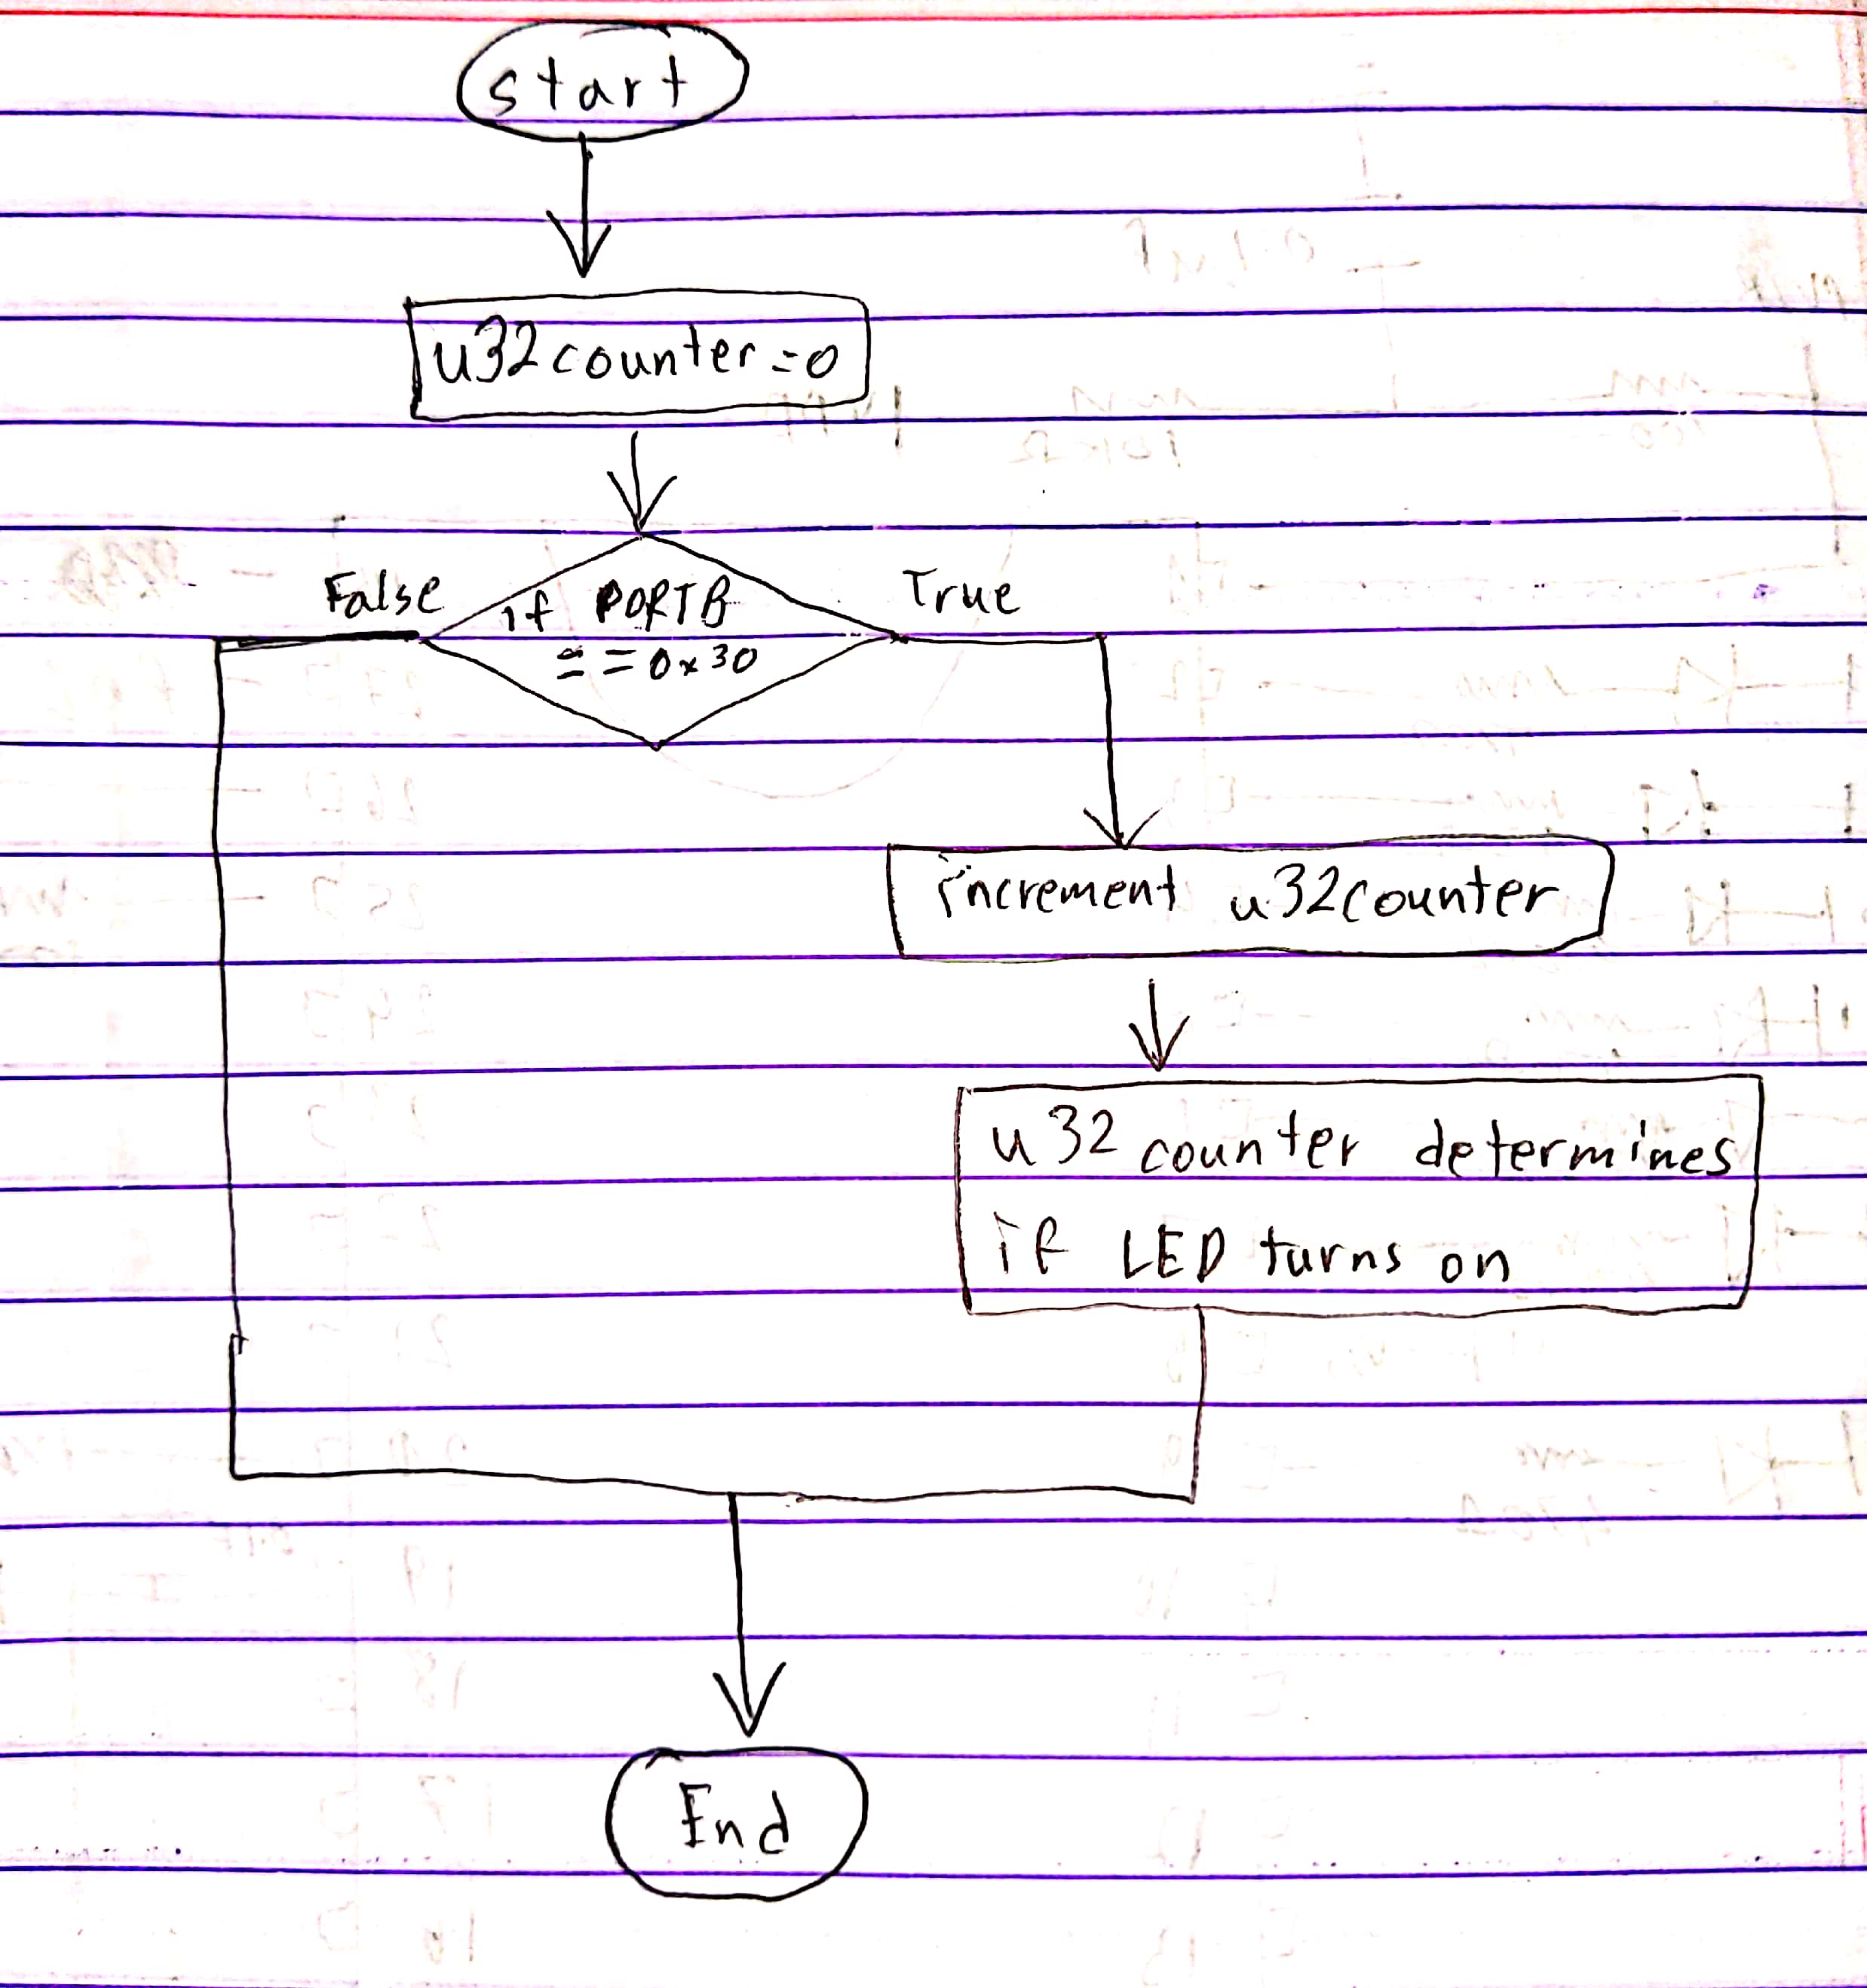 start
u32counter=0
False
if PORTB
True
==0x30
increment u32counter
u32 counter determines
if LED turns on
End